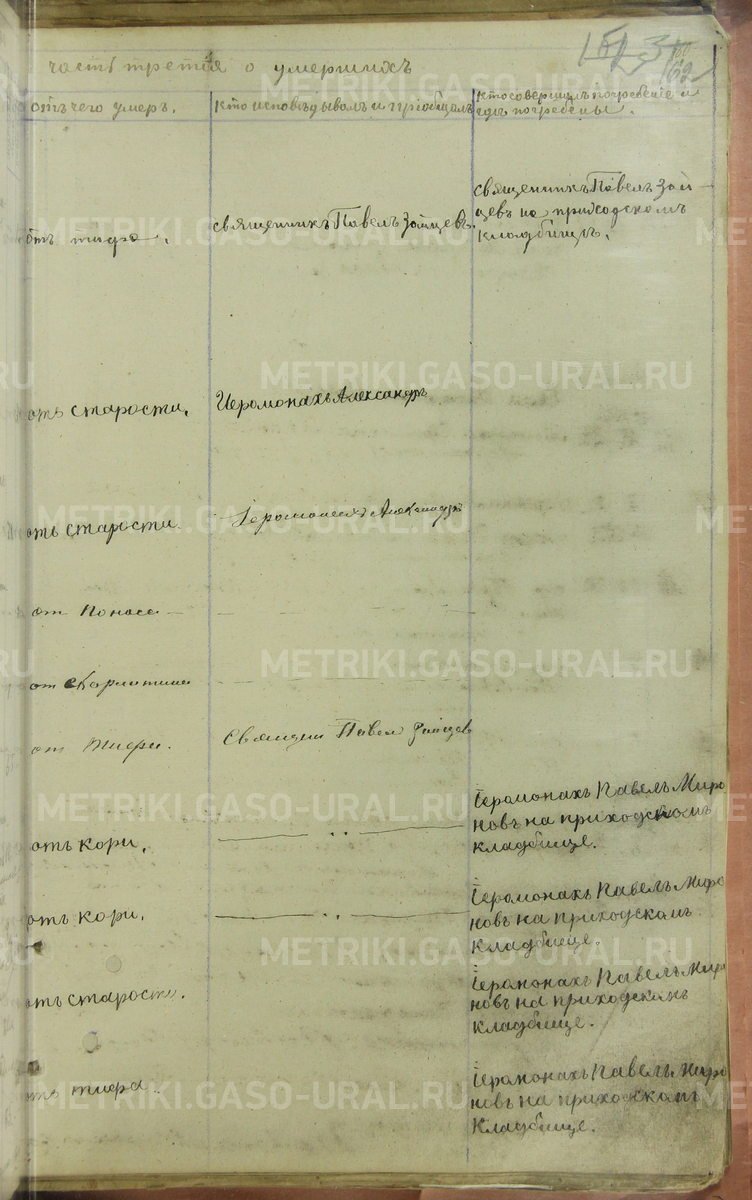 часть третья о умершихъ
отъ чего умеръ.
кто исповѣдывалъ и пріобщалъ
кто совершалъ погребеніе и
гдѣ погребены.
отъ тифа.
священникъ Павелъ Зайцевъ.
священникъ Павелъ Зай-
цевъ на приходскомъ
кладбищѣ.
отъ старости.
Иеромонахъ Александръ
отъ старости.
Іеромонахъ Александръ
от поноса —
от скарлатины
от тифа.
Священ Павел Зайцев
отъ кори.
Іеромонахъ Павелъ Миро
новъ на приходскомъ
кладбище.
отъ кори.
Іеромонахъ Павелъ Миро
новъ на приходскомъ
кладбище.
отъ старости.
Іеромонахъ Павелъ Миро
новъ на приходскомъ
кладбище.
отъ тифа
Іеромонахъ Павелъ Миро
новъ на приходскомъ
кладбище.
METRIKI.GASO-URAL.RU